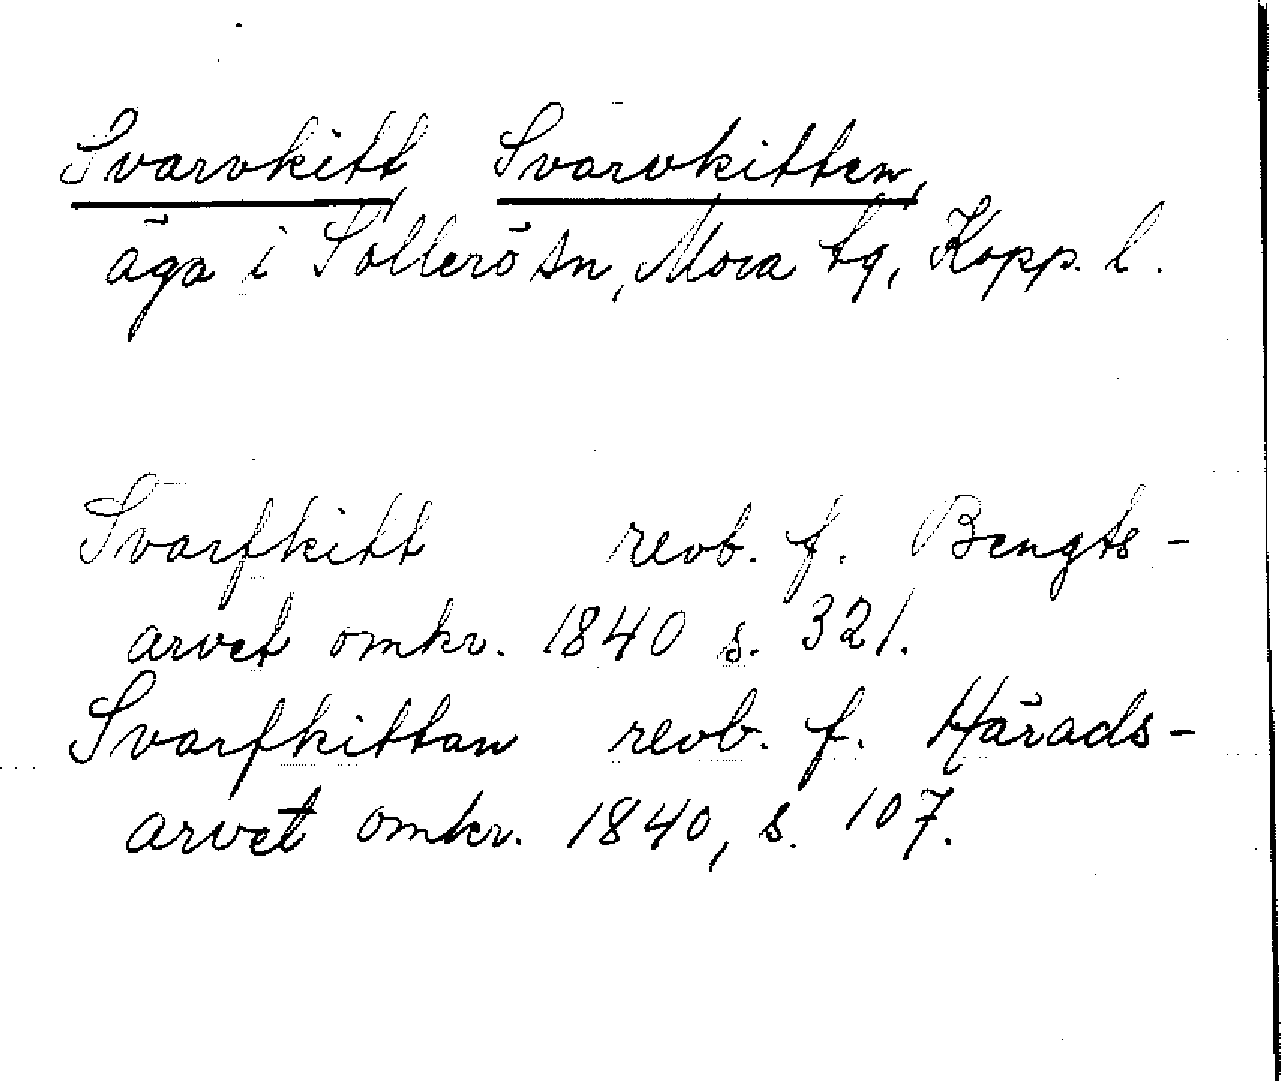 Svarvkitt, Svarvkitten,
äga i Sollerö sn, Mora tg, Kopp. l.
Svarfkitt revb. f. Bengts-
arvet omkr. 1840 s. 321.
Svarfkittan revb. f. Härads-
arvet omkr. 1840, s. 107.